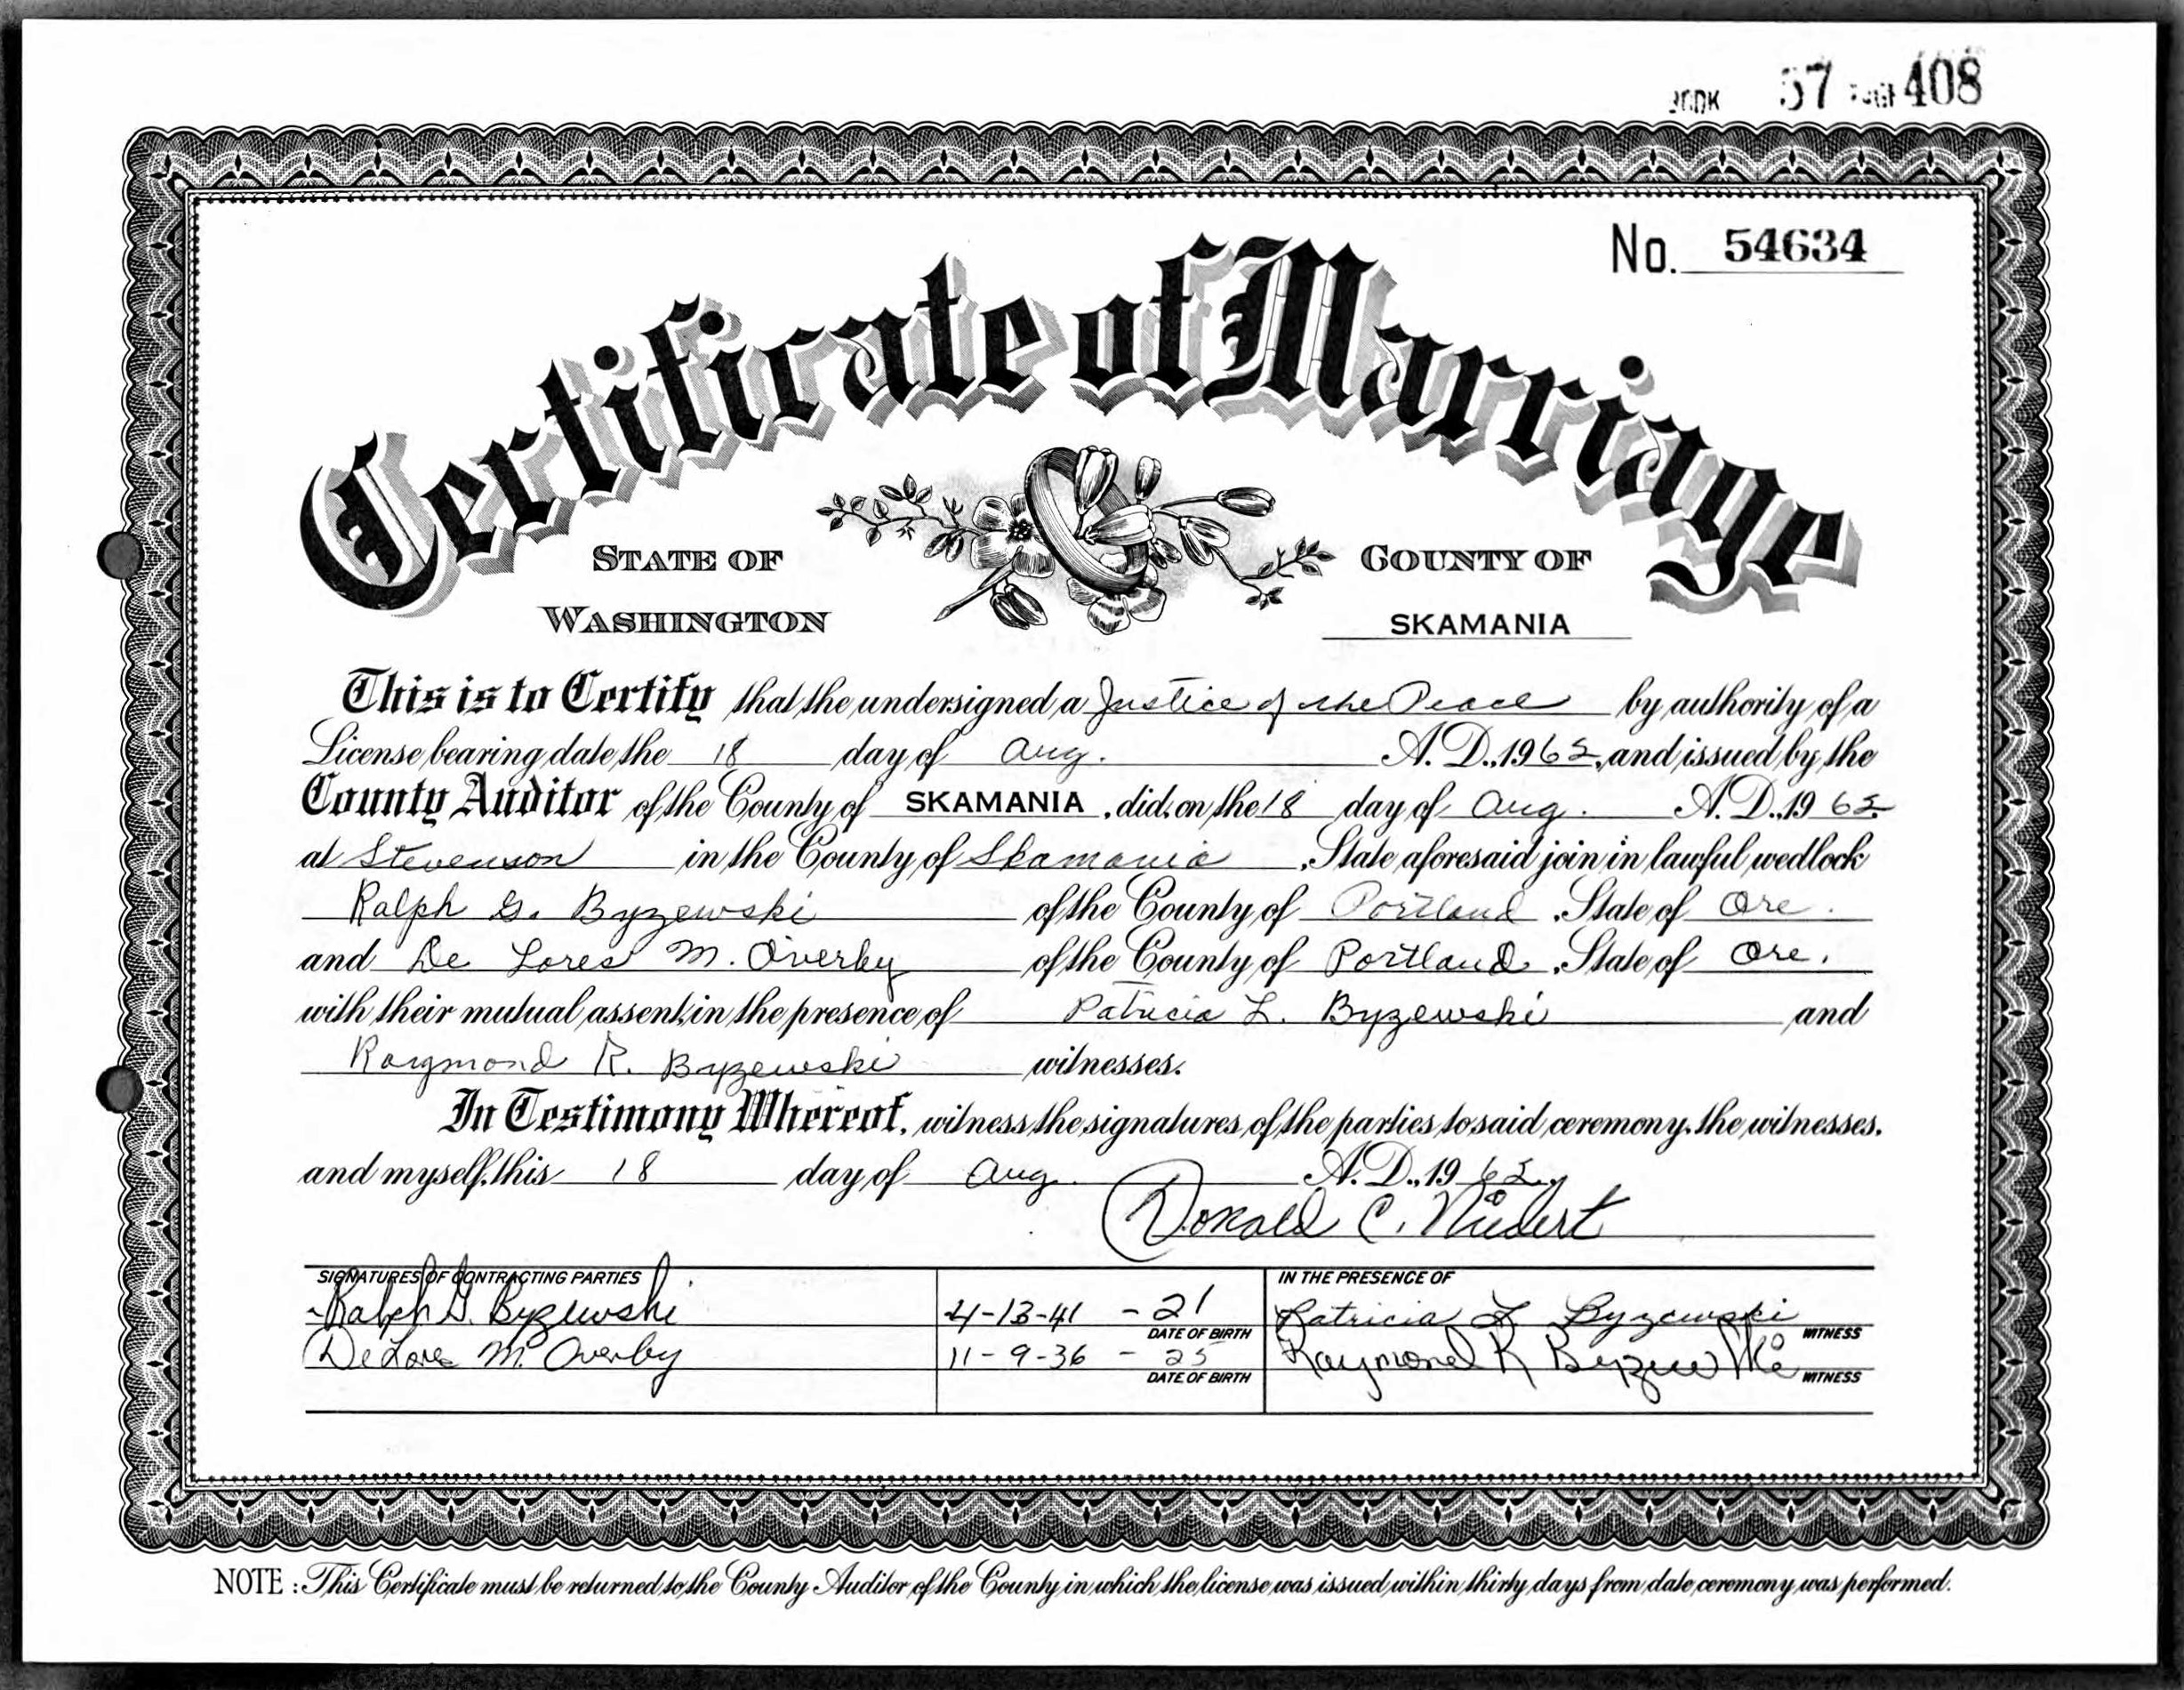 BOOK 57 PAGE 408
No. 54634
Certificate of Marriage
STATE OF WASHINGTON
COUNTY OF SKAMANIA
This is to Certify that the undersigned a Justice of the Peace by authority of a
License bearing date the 18 day of Aug. A.D. 1962, and issued by the
County Auditor of the County of SKAMANIA, did, on the 18 day of Aug. A.D. 1962
at Stevenson in the County of Skamania, State aforesaid join in lawful wedlock
Ralph G. Byzewski of the County of Portland, State of Ore.
and De Lores M. Overby of the County of Portland, State of Ore.
with their mutual assent, in the presence of Patricia L. Byzewski and
Raymond R. Byzewski witnesses.
In Testimony Whereof, witness the signatures of the parties to said ceremony, the witnesses,
and myself, this 18 day of Aug. A.D. 1962
Donald C.
SIGNATURES OF CONTRACTING PARTIES
IN THE PRESENCE OF
Ralph G. Byzewski 4-13-41 - 21 Patricia L Byzewski
DATE OF BIRTH WITNESS
DeLores M. Overby 11-9-36 - 25 Raymond R Byzewski
DATE OF BIRTH WITNESS
NOTE: This Certificate must be returned to the County Auditor of the County in which the license was issued within thirty days from date ceremony was performed.